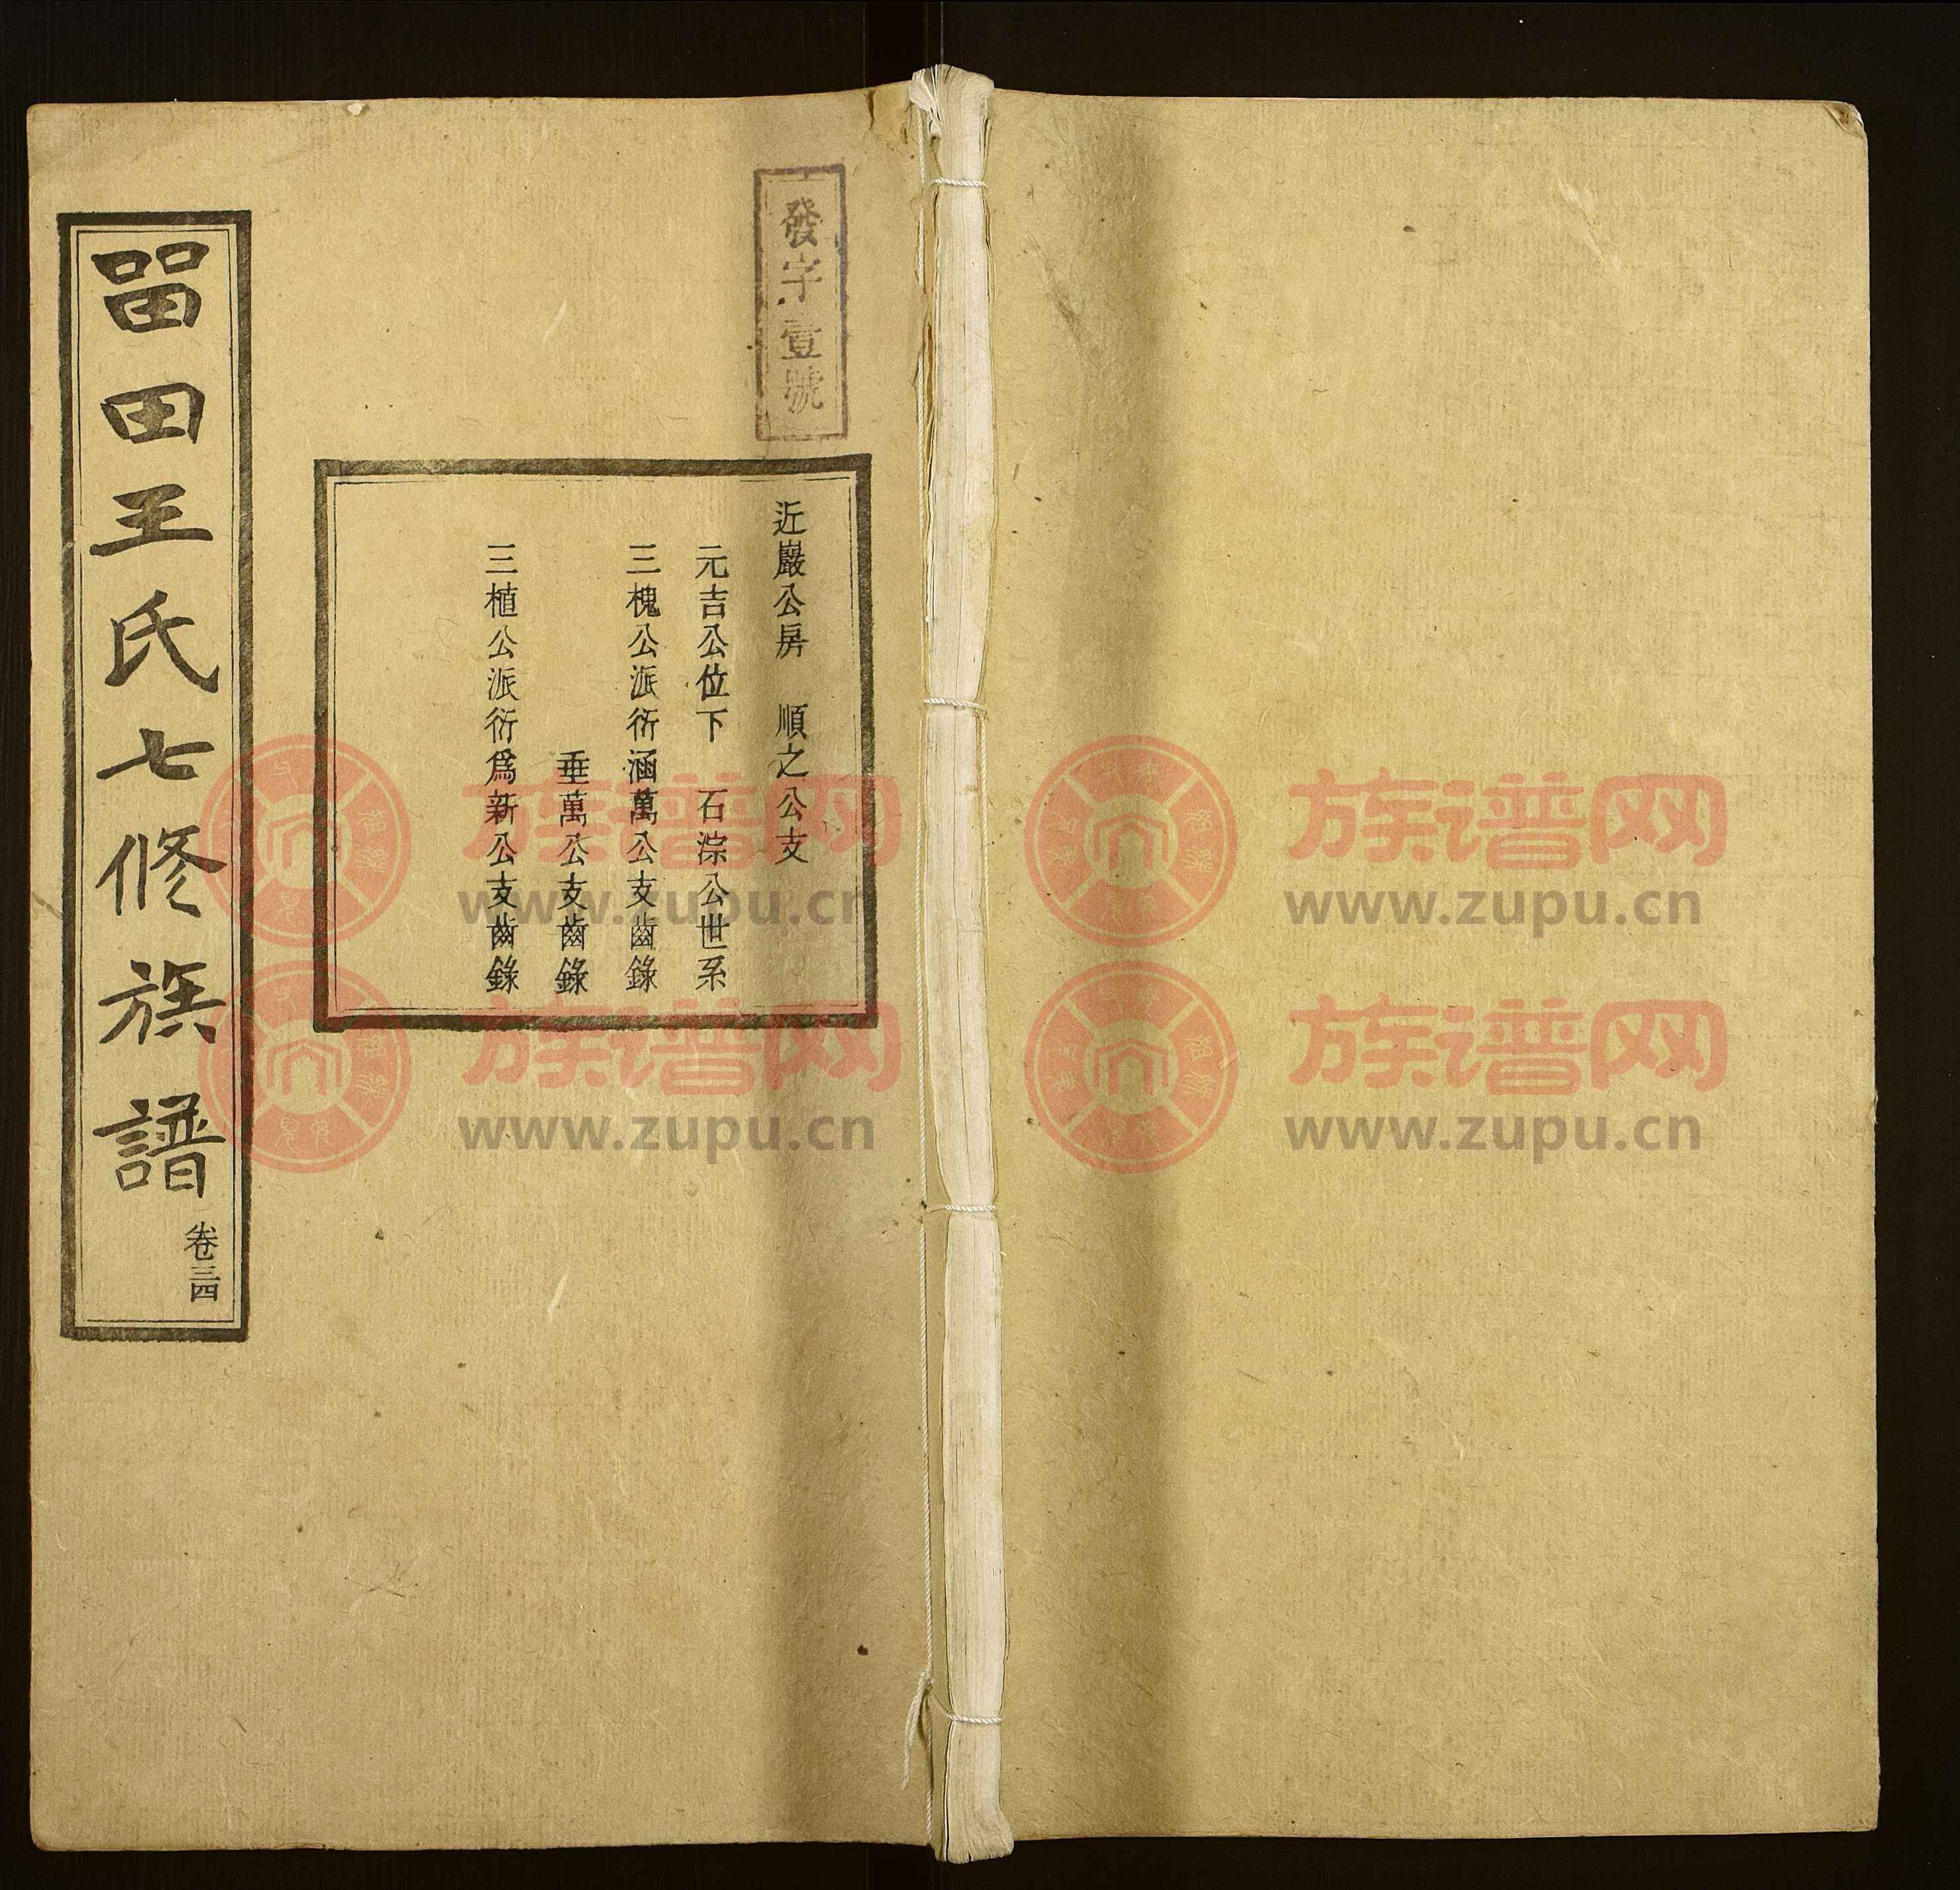 發字壹號
近巖公房　順之公支
元吉公位下　石淙公世系
三槐公派衍涵萬公支齒錄
垂萬公支齒錄
三植公派衍爲新公支齒錄
畱田王氏七修族譜
卷三四
族谱网
www.zupu.cn
族谱网
www.zupu.cn
族谱网
www.zupu.cn
族谱网
www.zupu.cn